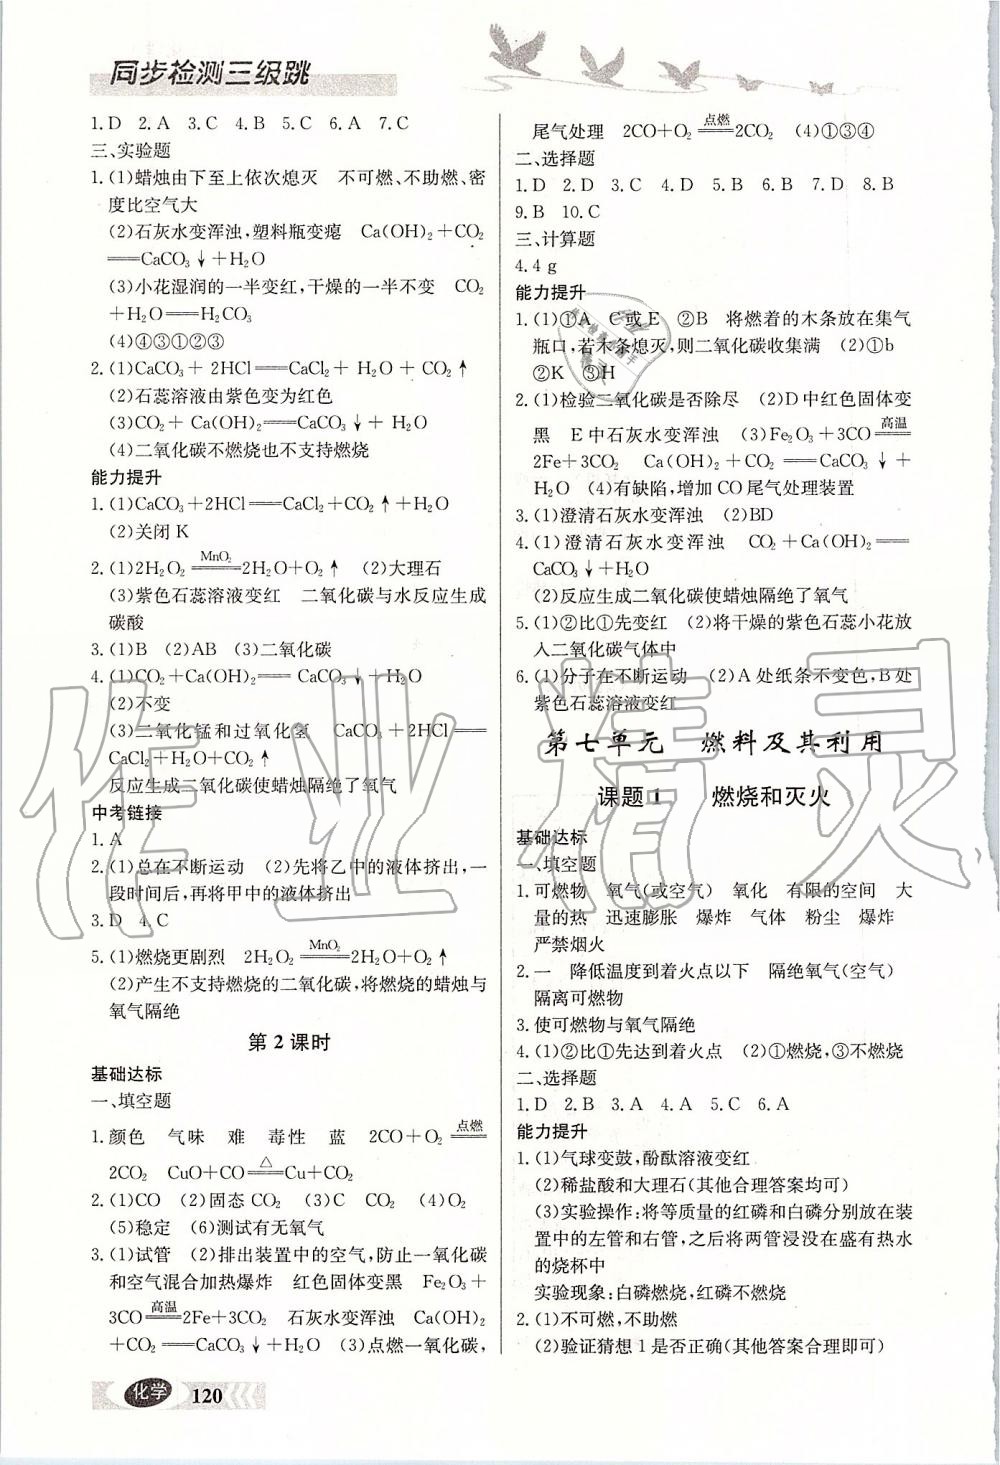 同步检测三级跳
1.D 2.A 3.C 4.B 5.C 6.A 7.C
三、实验题
1.(1)蜡烛由下至上依次熄灭 不可燃、不助燃、密
度比空气大
(2)石灰水变浑浊,塑料瓶变瘪 Ca(OH)₂+CO₂
══CaCO₃↓+H₂O
(3)小花湿润的一半变红,干燥的一半不变 CO₂
+H₂O══H₂CO₃
(4)④③①②③
2.(1)CaCO₃+2HCl══CaCl₂+H₂O+CO₂↑
(2)石蕊溶液由紫色变为红色
(3)CO₂+Ca(OH)₂══CaCO₃↓+H₂O
(4)二氧化碳不燃烧也不支持燃烧
能力提升
1.(1)CaCO₃+2HCl══CaCl₂+CO₂↑+H₂O
(2)关闭K
2.(1)2H₂O₂ MnO₂══2H₂O+O₂↑ (2)大理石
(3)紫色石蕊溶液变红 二氧化碳与水反应生成
碳酸
3.(1)B (2)AB (3)二氧化碳
4.(1)CO₂+Ca(OH)₂══CaCO₃↓+H₂O
(2)不变
(3)二氧化锰和过氧化氢 CaCO₃+2HCl══
CaCl₂+H₂O+CO₂↑
反应生成二氧化碳使蜡烛隔绝了氧气
中考链接
1.A
2.(1)总在不断运动 (2)先将乙中的液体挤出,一
段时间后,再将甲中的液体挤出
3.D 4.C
5.(1)燃烧更剧烈 2H₂O₂ MnO₂══2H₂O+O₂↑
(2)产生不支持燃烧的二氧化碳,将燃烧的蜡烛与
氧气隔绝
第2课时
基础达标
一、填空题
1.颜色 气味 难 毒性 蓝 2CO+O₂ 点燃══
2CO₂ CuO+CO △══Cu+CO₂
2.(1)CO (2)固态CO₂ (3)C CO₂ (4)O₂
(5)稳定 (6)测试有无氧气
3.(1)试管 (2)排出装置中的空气,防止一氧化碳
和空气混合加热爆炸 红色固体变黑 Fe₂O₃+
3CO 高温══2Fe+3CO₂ 石灰水变浑浊 Ca(OH)₂
+CO₂══CaCO₃↓+H₂O (3)点燃一氧化碳,
化学 120
尾气处理 2CO+O₂ 点燃══2CO₂ (4)①③④
二、选择题
1.D 2.D 3.C 4.D 5.B 6.B 7.D 8.B
9.B 10.C
三、计算题
4.4 g
能力提升
1.(1)①A C或E ②B 将燃着的木条放在集气
瓶口,若木条熄灭,则二氧化碳收集满 (2)①b
②K ③H
2.(1)检验二氧化碳是否除尽 (2)D中红色固体变
黑 E中石灰水变浑浊 (3)Fe₂O₃+3CO 高温══
2Fe+3CO₂ Ca(OH)₂+CO₂══CaCO₃↓+
H₂O (4)有缺陷,增加CO尾气处理装置
3.(1)澄清石灰水变浑浊 (2)BD
4.(1)澄清石灰水变浑浊 CO₂+Ca(OH)₂══
CaCO₃↓+H₂O
(2)反应生成二氧化碳使蜡烛隔绝了氧气
5.(1)②比①先变红 (2)将干燥的紫色石蕊小花放
入二氧化碳气体中
6.(1)分子在不断运动 (2)A处纸条不变色,B处
紫色石蕊溶液变红
第七单元 燃料及其利用
课题1 燃烧和灭火
基础达标
一、填空题
1.可燃物 氧气(或空气) 氧化 有限的空间 大
量的热 迅速膨胀 爆炸 气体 粉尘 爆炸
严禁烟火
2.一 降低温度到着火点以下 隔绝氧气(空气)
隔离可燃物
3.使可燃物与氧气隔绝
4.(1)②比①先达到着火点 (2)①燃烧,③不燃烧
二、选择题
1.D 2.B 3.A 4.A 5.C 6.A
能力提升
1.(1)气球变鼓,酚酞溶液变红
(2)稀盐酸和大理石(其他合理答案均可)
(3)实验操作:将等质量的红磷和白磷分别放在装
置中的左管和右管,之后将两管浸没在盛有热水
的烧杯中
实验现象:白磷燃烧,红磷不燃烧
2.(1)不可燃,不助燃
(2)验证猜想1是否正确(其他答案合理即可)
作业精灵